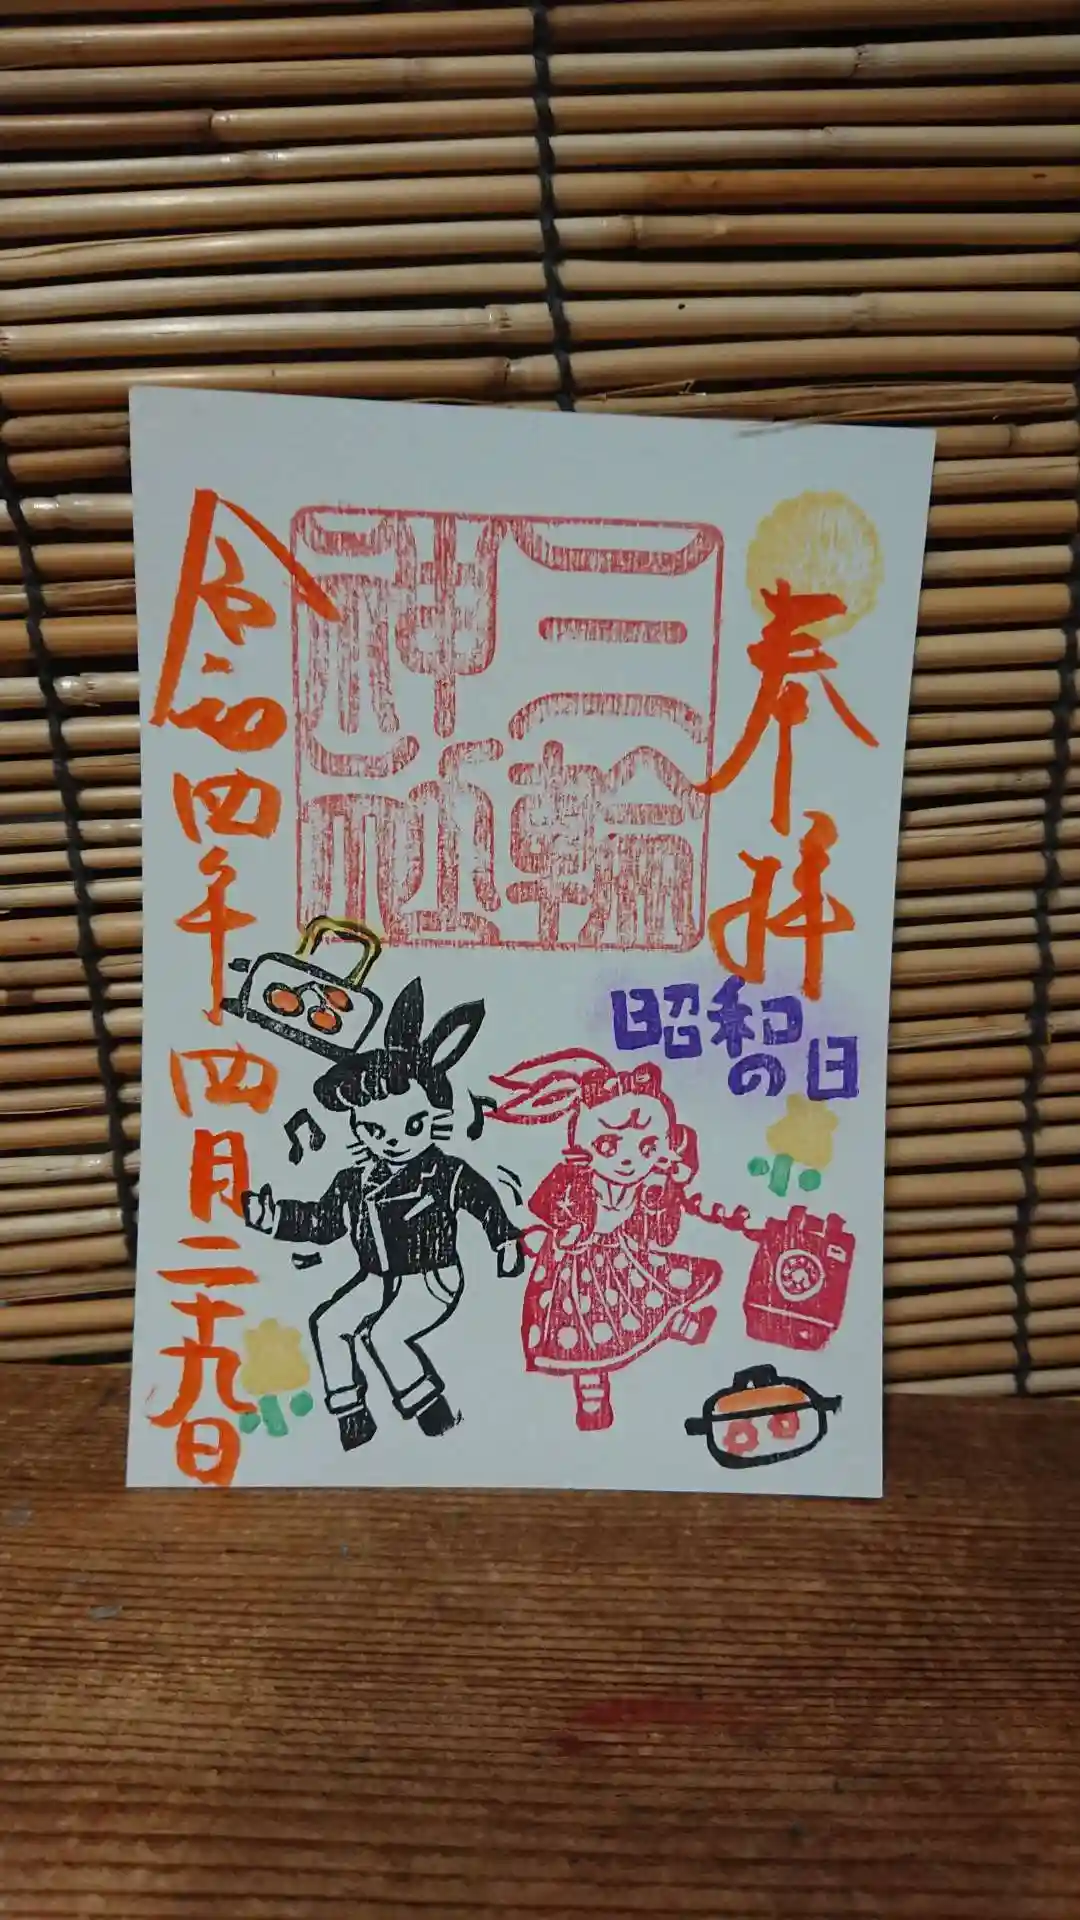 奉拝
昭和
の日
三輪
神社
令和四年四月二十九日